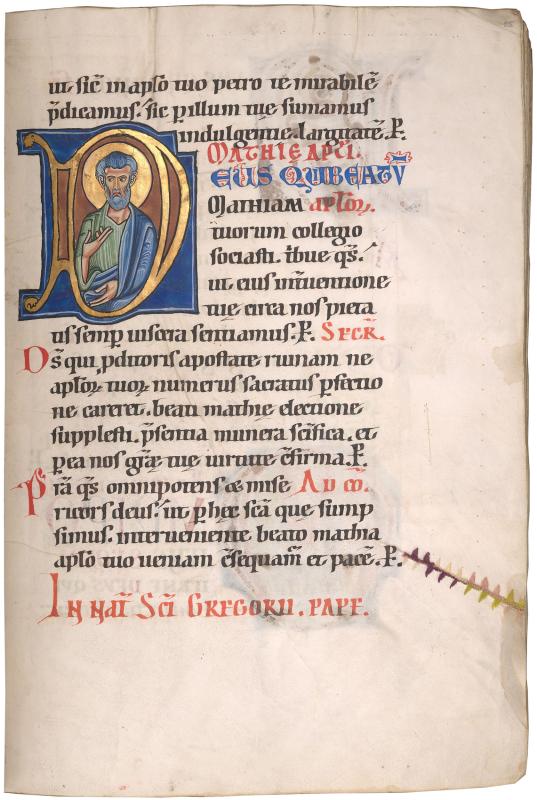 ut sic̄ in ap̄lo tuo petro te mirabilē
p̄dicamus. sic p illum tue sumamus
indulgentie largitatē. P.
MATHIE APĽI.
DEUS QUI BEATŪ
Mathiam apl̄oꝝ.
tuorum collegio
sociasti. tbue qs̄.
ut eius int̄uentione
tue circa nos pieta
tis semp uiscera sentiamus. P. SECR̄.
Ds̄ qui pditoris apostate ruinam ne
apl̄oꝝ tuoꝝ numerus sacratus pfectio
ne careret. beati mathie electione
supplesti. p̄sentia munera sc̄ifica. et
p ea nos gr̄e tue uirtute c̄firma. P.
Pr̄a qs̄ omnipotens æ mise AD CŌ.
ricors deus. ut p hec sc̄a que sump
simus. interueniente beato mathia
ap̄lo tuo ueniam c̄sequam̄ et pacē. P.
IN NAT̄ SC̄I GREGORII. PAPE.